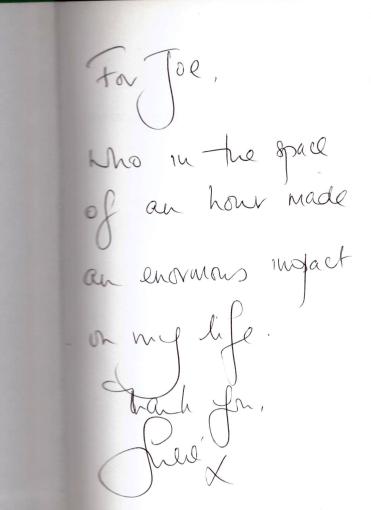 For Joe,
who in the space
of an hour made
an enormous impact
on my life.
Thank you,
x